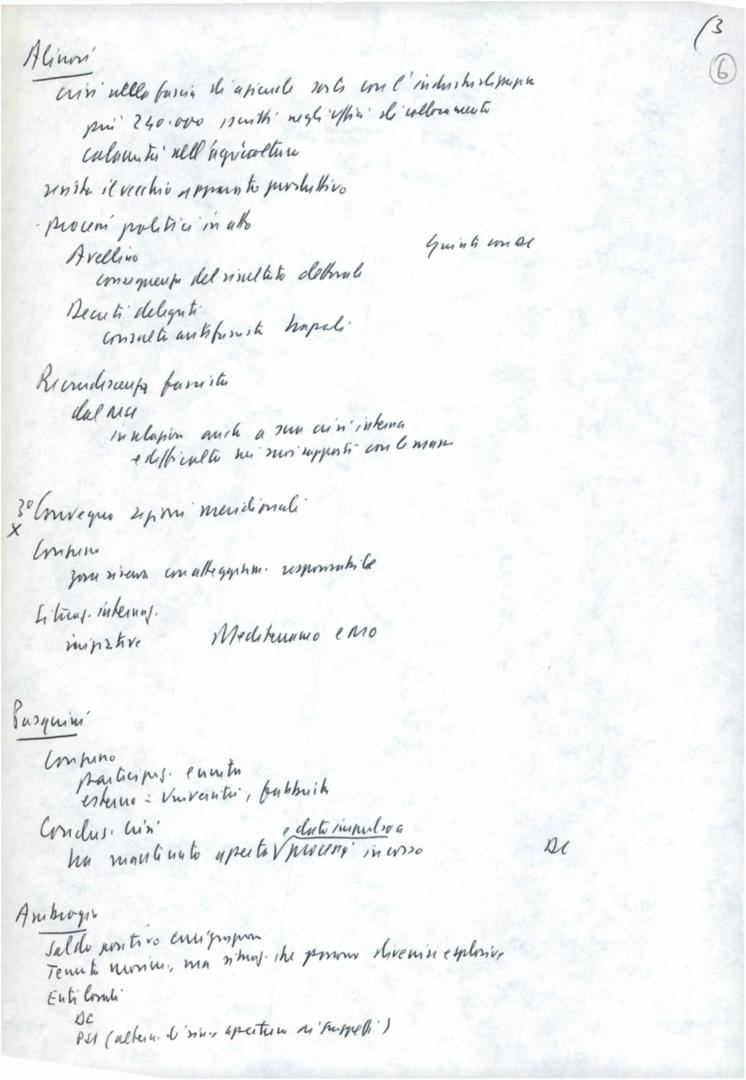 /3
6
Alinovi
crisi nella fascia di aziende sorte con l'industrializzazione
più 240.000 iscritti negli uffici di collocamento
calamità nell'agricoltura
resiste il vecchio apparato produttivo
- processi politici in atto
Avellino
Giunta con DC
conseguenza del risultato elettorale
Decreti delegati
consulta antifascista Napoli
Recrudescenza fascista
dal MSI
in relazione anche a sua crisi interna
e difficoltà nei suoi rapporti con le masse
3º Convegno regioni meridionali
X
Congresso
con atteggiam. responsabile
Situaz. internaz.
iniziative Mediterraneo e MO
Pasquini
Congresso
partecipaz. e unità
esterno = Università, fabbriche
Conclus. crisi
e dato impulso a
ha mantenuto aperto √ processi in corso
DC
Ambrogio
Saldo positivo emigrazione
Tenuta movim., ma situaz. che possono divenire esplosive
Enti locali
DC
PSI (altern. di sin. apertura ai )